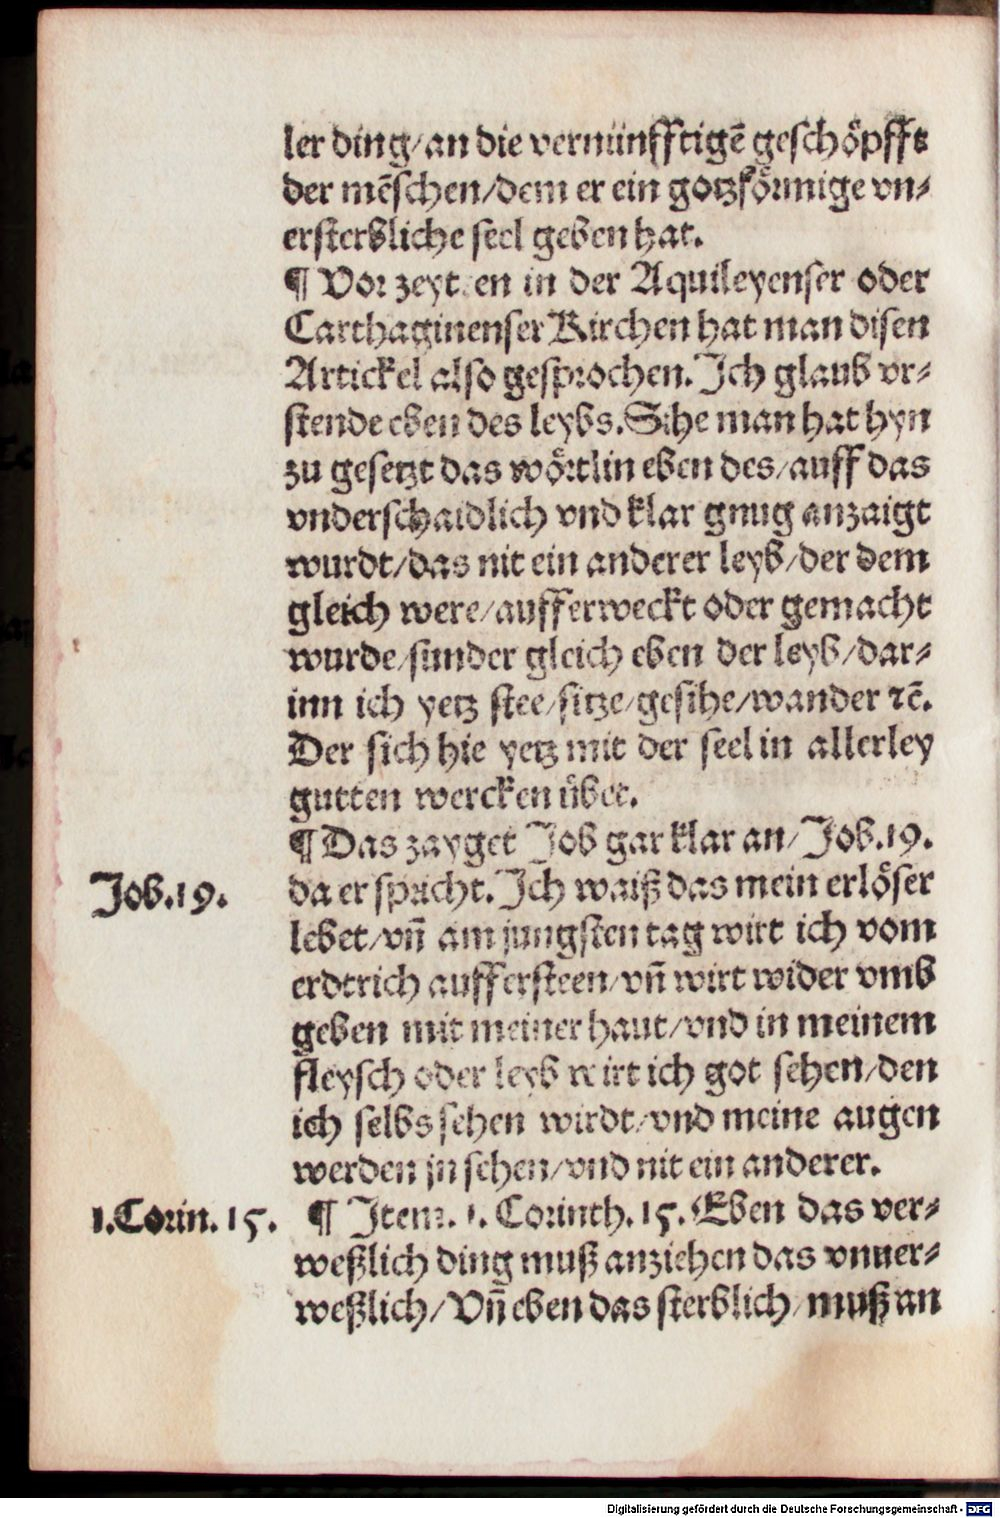 ler ding/an die vernünfftigē geschöpfft
der mēschen/dem er ein gotzkörmige vn⸗
ersterbliche seel geben hat.
¶ Vor zeyten in der Aquileyenser oder
Carthaginenser Kirchen hat man disen
Artickel also gesprochen. Ich glaub vr⸗
stende eben des leybs. Sihe man hat hyn
zu gesetzt das wörtlin eben des/auff das
vnderschaidlich vnd klar gnug anzaigt
wurdt/das nit ein anderer leyb/der dem
gleich were/aufferweckt oder gemacht
wurde/sunder gleich eben der leyb/dar⸗
inn ich yetz stee/sitze/gesihe/wander ⁊c̄.
Der sich hie yetz mit der seel in allerley
gutten wercken übet.
¶ Das zayget Job gar klar an/Job.19.
Job.19.
da er spricht. Ich waiß das mein erlöser
lebet/vñ am jungsten tag wirt ich vom
erdtrich aufferst​een/vñ wirt wider vmb
geben mit meiner haut/vnd in meinem
fleysch oder leyb wirt ich got sehen/den
ich selbs sehen wirdt/vnd meine augen
werden jn sehen/vnd nit ein anderer.
1.Corin.15.
¶ Item. 1. Corinth. 15. Eben das ver⸗
weßlich ding muß anziehen das vnuer⸗
weßlich/Vñ eben das sterblich/muß an
Digitalisierung gefördert durch die Deutsche Forschungsgemeinschaft - DFG